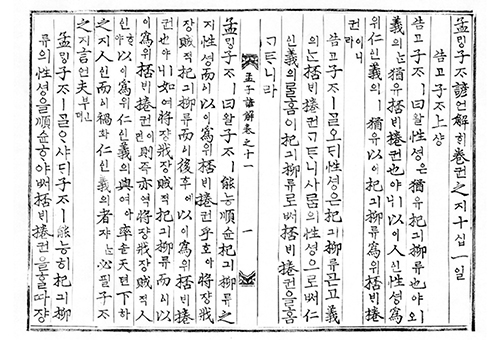 孟ᄆᆡᆼ子ᄌᆞ諺언解ᄒᆡ卷권之지十십一일
告고子ᄌᆞ上샹
告고子ᄌᆞㅣ曰왈性셩은猶유杞긔柳류也야ㅣ오
義의ᄂᆞᆫ猶유桮ᄇᆡ棬권也야ㅣ니以이人인性셩爲
위仁인義의ㅣ猶유以이杞긔柳류爲위桮ᄇᆡ棬
권이니라
告고子ᄌᆞㅣᄀᆞᆯ오ᄃᆡ性셩은杞긔柳류ᄀᆞᆮ고義
의ᄂᆞᆫ桮ᄇᆡ棬권ᄀᆞᄐᆞ니사ᄅᆞᆷ의性셩으로ᄡᅥ仁인
義의ᄅᆞᆯᄒᆞᆷ이杞긔柳류로ᄡᅥ桮ᄇᆡ棬권을ᄒᆞᆷ
ᄀᆞᄐᆞ니라
孟子諺解卷之十一 一
孟ᄆᆡᆼ子ᄌᆞㅣ曰왈子ᄌᆞㅣ能능順슌杞긔柳류之
지性셩而이以이爲위桮ᄇᆡ棬권乎호아將쟝戕쟝
賊적杞긔柳류而이後후에以이爲위桮ᄇᆡ棬
권也야ㅣ니如여將쟝戕쟝賊적杞긔柳류而이以
이爲위桮ᄇᆡ棬권이면則즉亦역將쟝戕쟝賊적人
인ᄒᆞ야以이爲위仁인義의與여아率솔天텬下하
之지人인而이禍화仁인義의者쟈ᄂᆞᆫ必필子ᄌᆞ
之지言언夫부ᅟᅵᆫ뎌
孟ᄆᆡᆼ子ᄌᆞㅣᄀᆞᆯᄋᆞ샤ᄃᆡ子ᄌᆞㅣ能능히杞긔柳
류의性셩을順슌ᄒᆞ야ᄡᅥ桮ᄇᆡ棬권을ᄒᆞᆯ따쟝